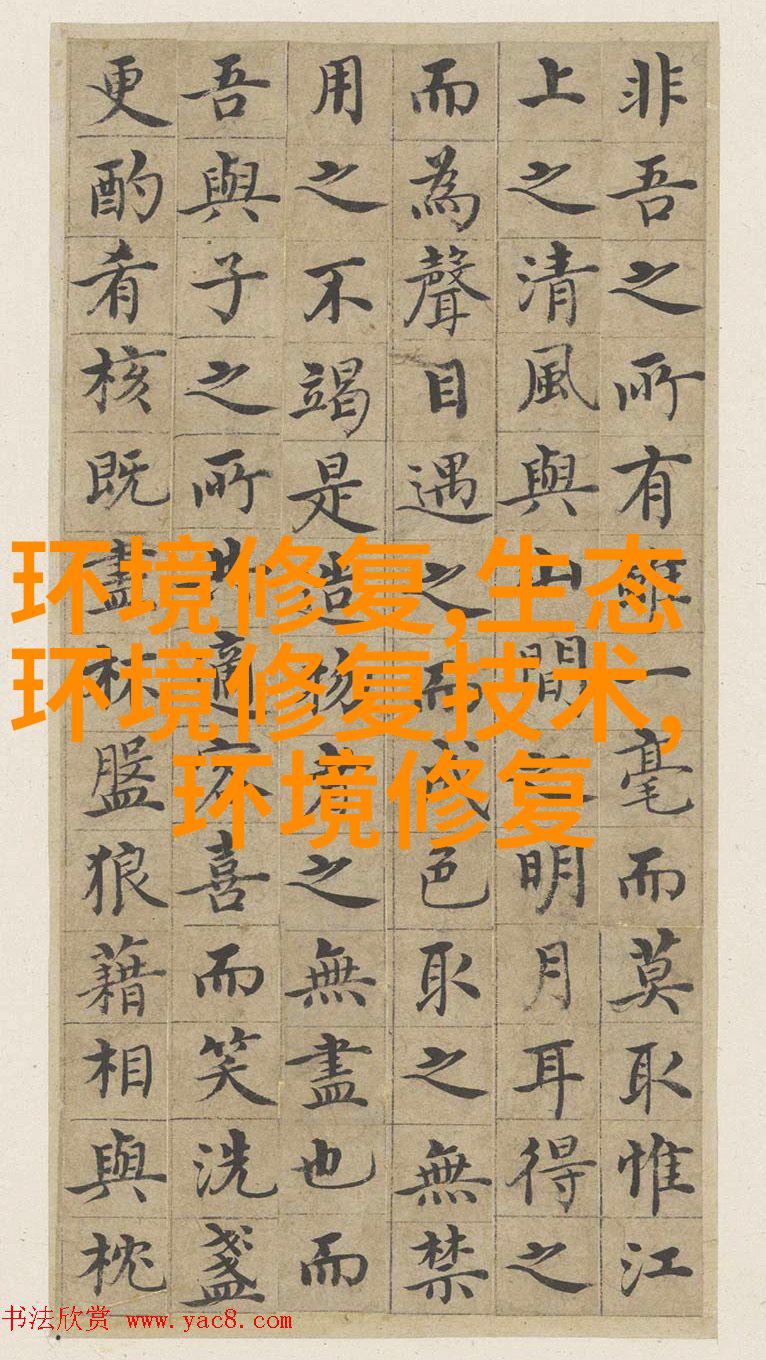 非吾之所有雖一毫而莫取惟江
上之清風與山間之明月耳得之
而為聲目遇之而成色取之無禁
用之不竭是造物者之無盡也而
吾與子之所共適客喜而笑洗盞
更酌肴核既盡杯盤狼藉相與枕
环境修复,生态
环境修复技术,
环境修复
书法欣赏 www.yac8.com